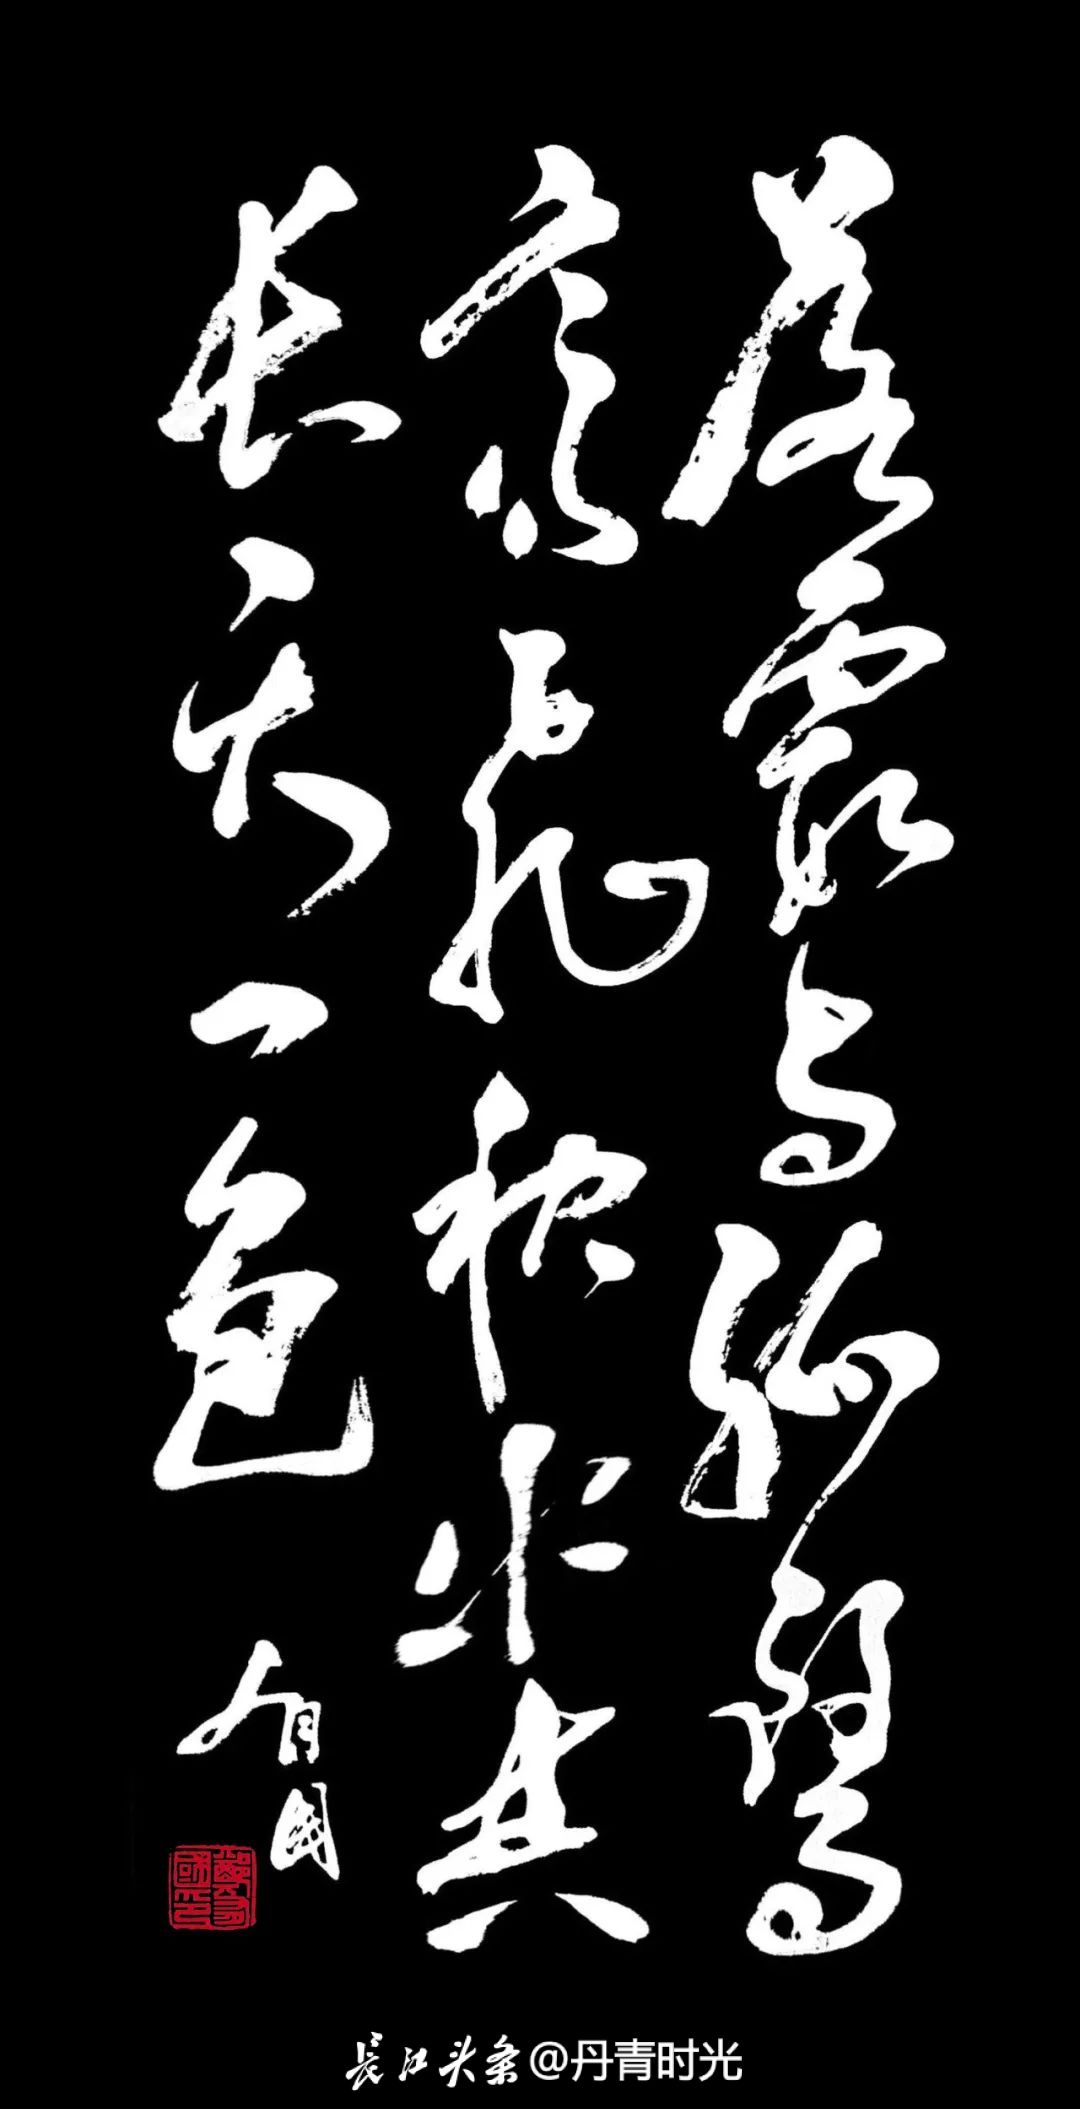 落霞与孤鹜
齐飞秋水共
长天一色
有国
长江头条@丹青时光